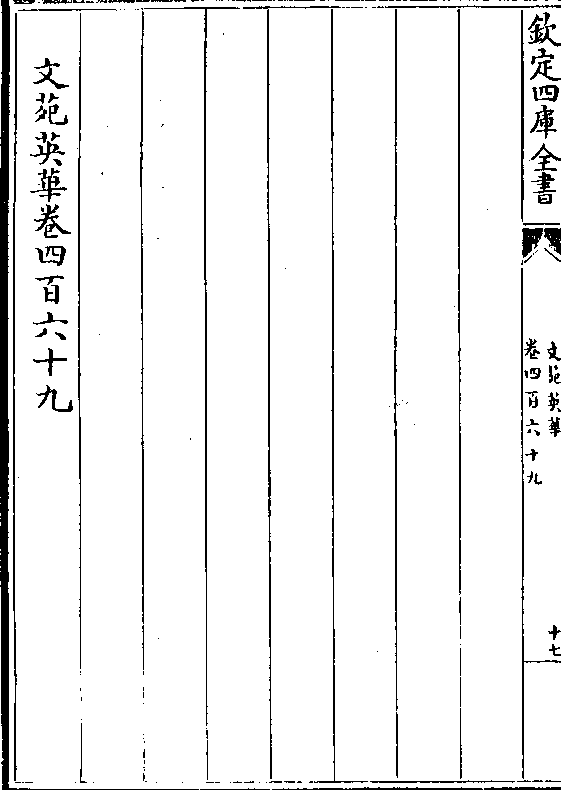 欽定四庫全書
文苑英華
卷四百六十九
十七
文苑英華卷四百六十九